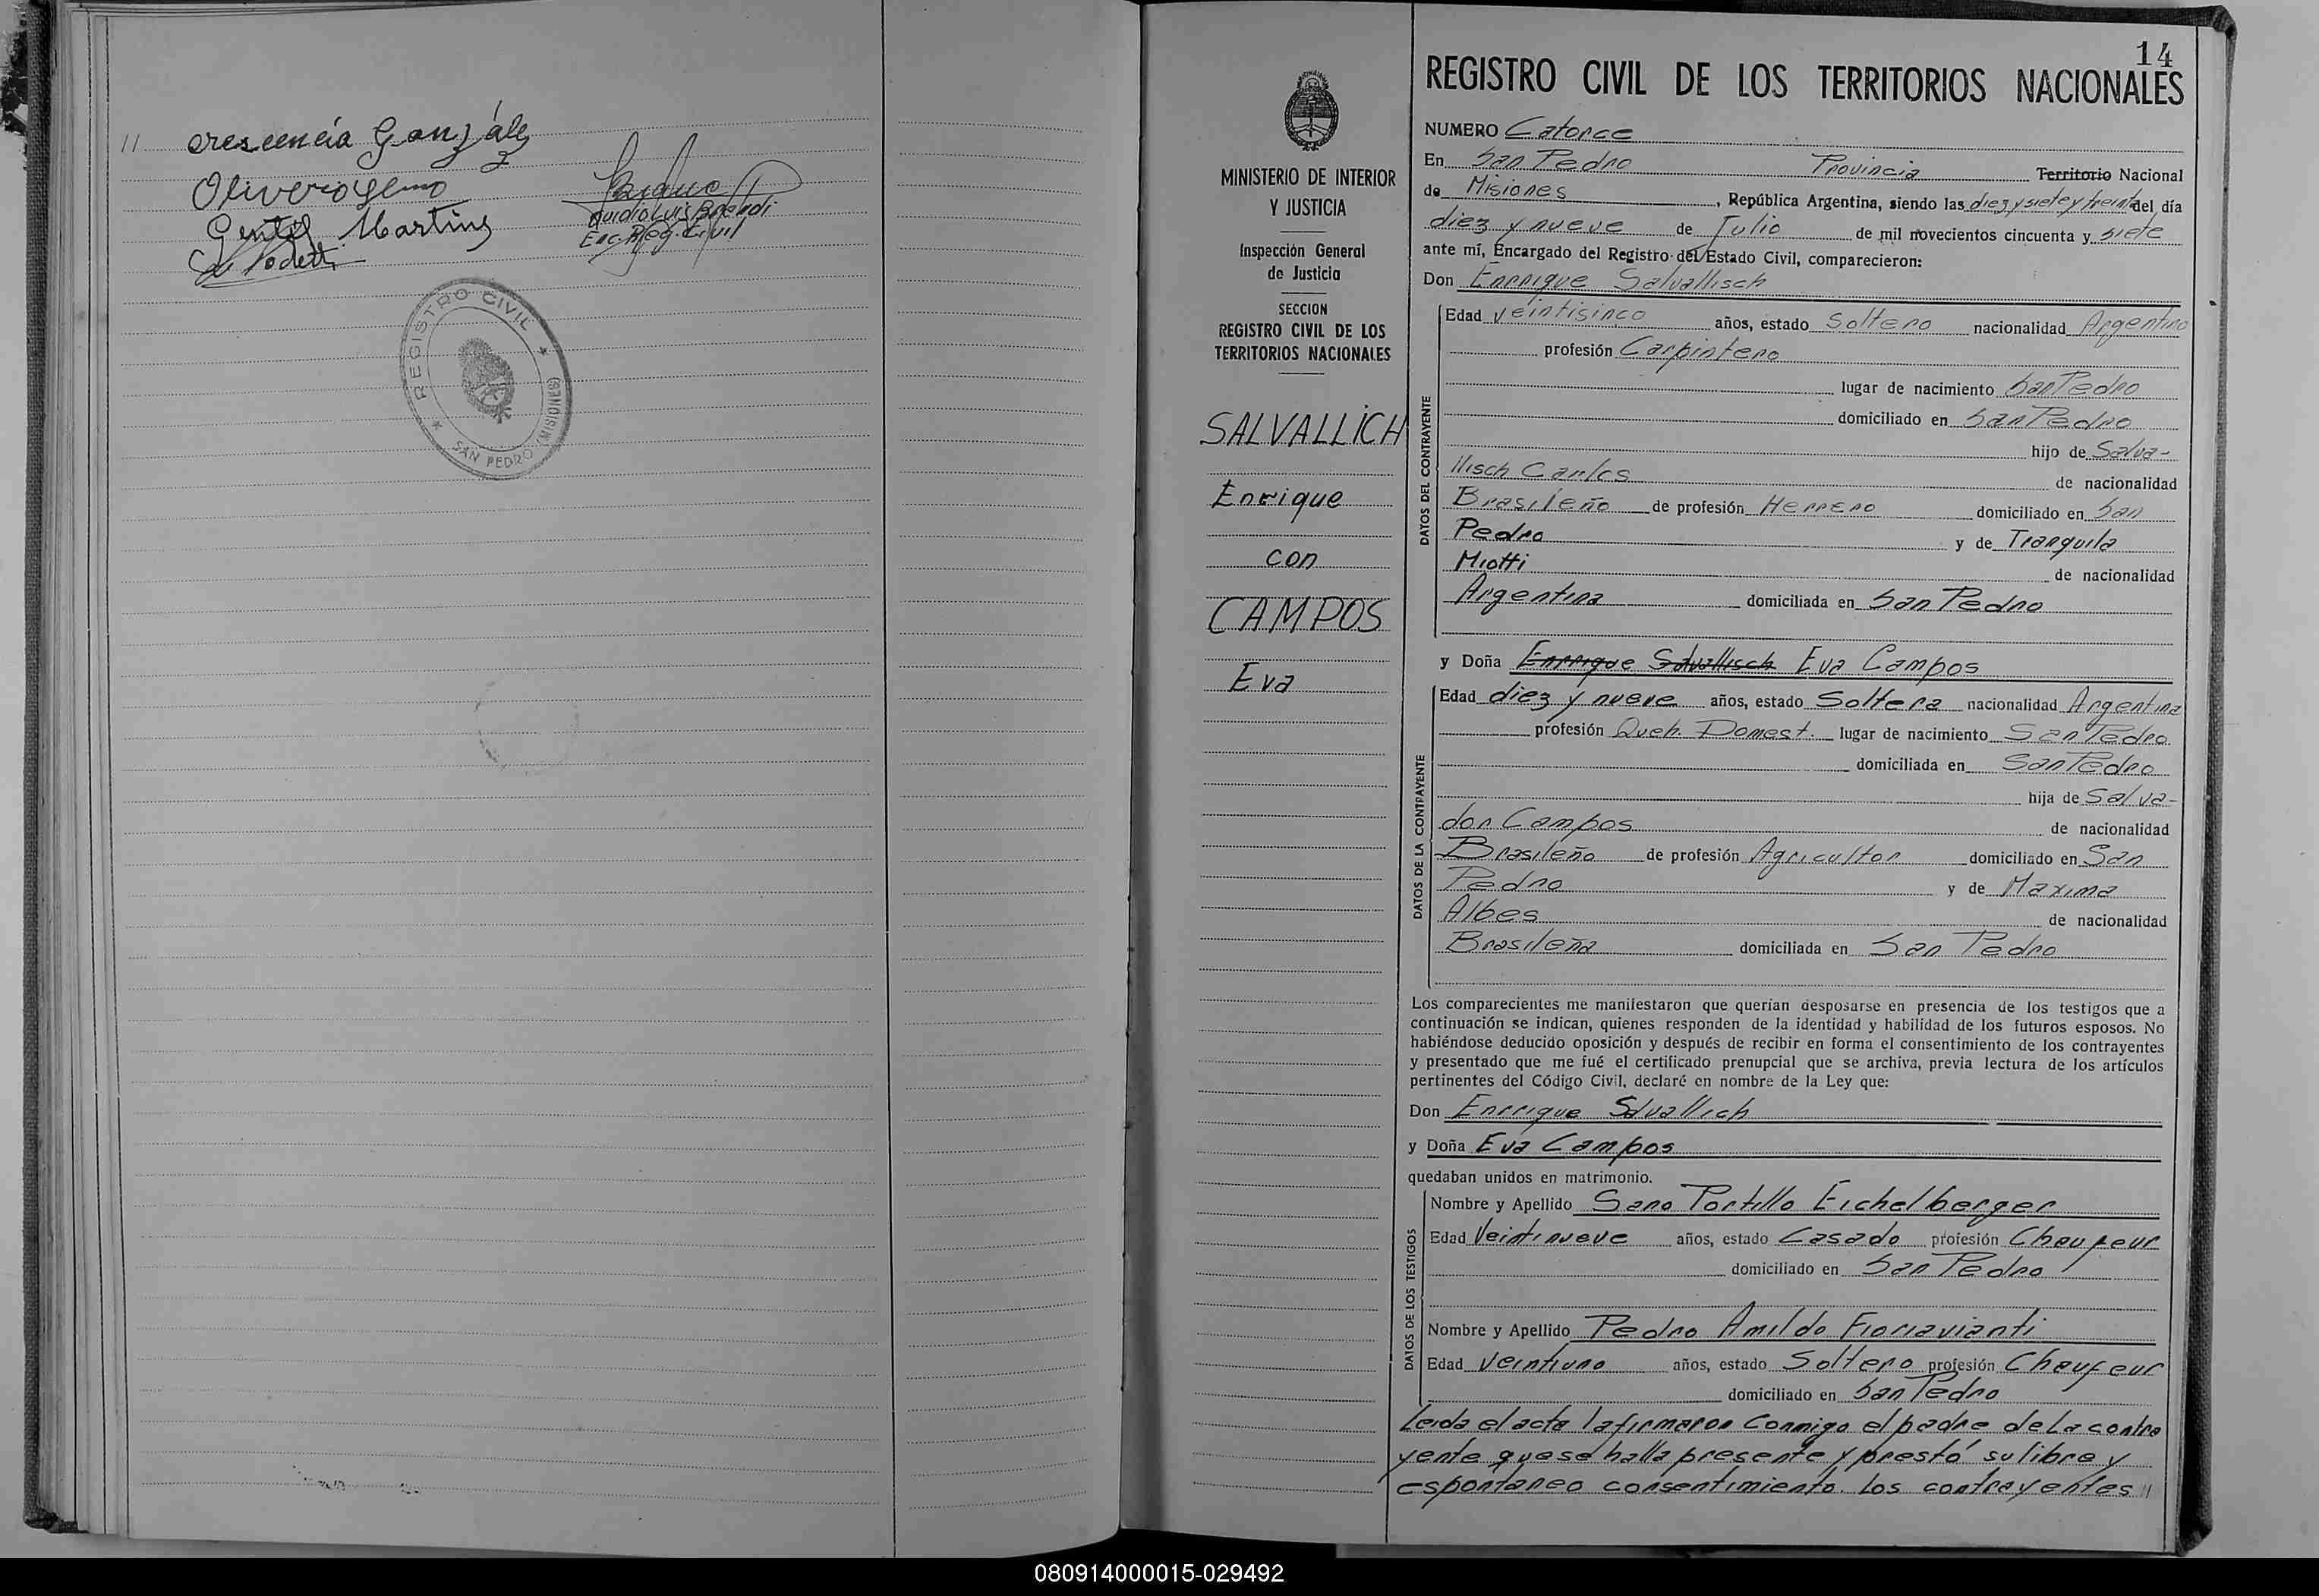 11 crescencia González
Oliverio
Gentil Martins
Claudio Luis
Enc. Reg. Civil
REGISTRO CIVIL
SAN PEDRO (MISIONES)
14
REGISTRO CIVIL DE LOS TERRITORIOS NACIONALES
MINISTERIO DE INTERIOR
Y JUSTICIA
Inspección General
de Justicia
SECCION
REGISTRO CIVIL DE LOS
TERRITORIOS NACIONALES
SALVALLICH
Enrique
con
CAMPOS
Eva
NUMERO Catorce
En San Pedro Provincia Territorio Nacional
de Misiones, República Argentina, siendo las diez y siete y treinta del día
diez y nueve de Julio de mil novecientos cincuenta y siete
ante mí, Encargado del Registro del Estado Civil, comparecieron:
Don Enrrique Salvallisch
DATOS DEL CONTRAYENTE
Edad veintisinco años, estado Soltero nacionalidad Argentino
profesión Carpintero
lugar de nacimiento San Pedro
domiciliado en San Pedro
hijo de Salva-
llisch Carlos de nacionalidad
Brasileño de profesión Herrero domiciliado en San
Pedro y de Tranquila
Miotti de nacionalidad
Argentina domiciliada en San Pedro
y Doña Enrrique Salvallisch Eva Campos
DATOS DE LA CONTRAYENTE
Edad diez y nueve años, estado Soltera nacionalidad Argentina
profesión Queh. Domest. lugar de nacimiento San Pedro
domiciliada en San Pedro
hija de Salva-
dor Campos de nacionalidad
Brasileño de profesión Agricultor domiciliado en San
Pedro y de Maxima
Albes de nacionalidad
Brasileña domiciliada en San Pedro
Los comparecientes me manifestaron que querían desposarse en presencia de los testigos que a
continuación se indican, quienes responden de la identidad y habilidad de los futuros esposos. No
habiéndose deducido oposición y después de recibir en forma el consentimiento de los contrayentes
y presentado que me fué el certificado prenupcial que se archiva, previa lectura de los artículos
pertinentes del Código Civil, declaré en nombre de la Ley que:
Don Enrrique Salvallich
y Doña Eva Campos
quedaban unidos en matrimonio.
DATOS DE LOS TESTIGOS
Nombre y Apellido Sano Portillo Eichelberger
Edad Veintinueve años, estado Casado profesión Chaufeur
domiciliado en San Pedro
Nombre y Apellido Pedro Amildo Fioriavianti
Edad Veintiuno años, estado Soltero profesión Chaufeur
domiciliado en San Pedro
Leida el acta la firmaron conmigo el padre de La contra
yente que se halla presente y prestó su libre y
espontaneo consentimiento. Los contrayentes 11
080914000015-029492